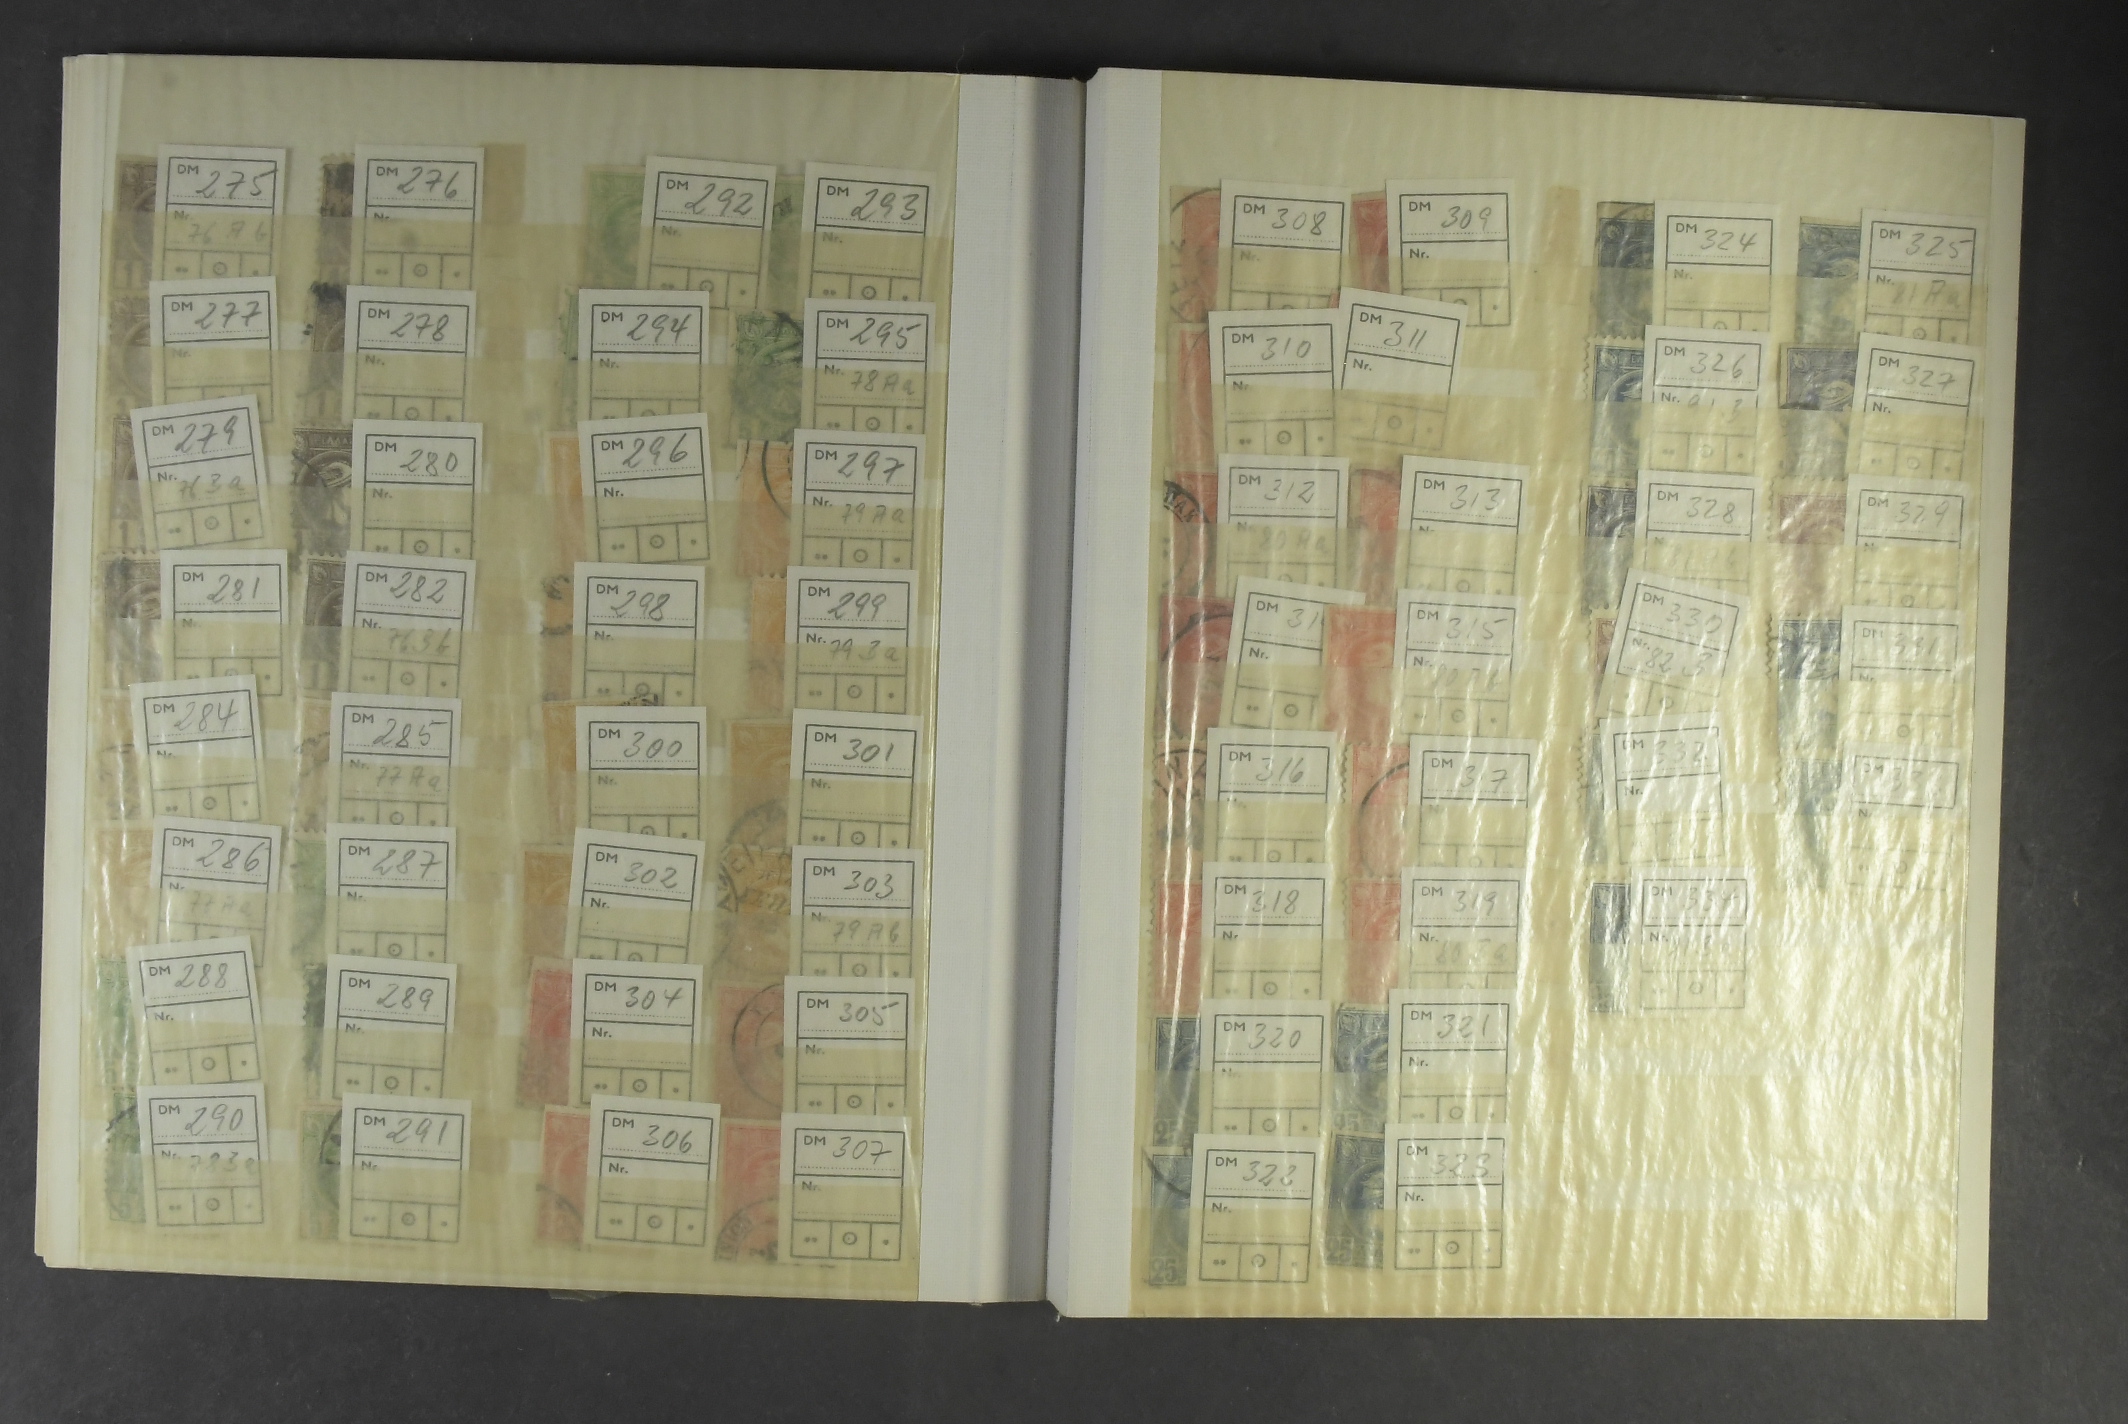 DM 275
Nr. 76 A b
DM 276
Nr.
DM 292
Nr.
DM 293
Nr.
DM 277
Nr.
DM 278
Nr.
DM 294
Nr.
DM 295
Nr. 78 A a
DM 279
Nr. 76 B a
DM 280
Nr.
DM 296
Nr.
DM 297
Nr. 79 A a
DM 281
N.
DM 282
Nr. 76 B b
DM 298
Nr.
DM 299
Nr. 79 B a
DM 284
Nr.
DM 285
Nr. 77 A a
DM 300
Nr.
DM 301
Nr.
DM 286
Nr. 77 A a
DM 287
Nr.
DM 302
Nr.
DM 303
Nr. 79 A b
DM 288
Nr.
DM 289
Nr.
DM 304
Nr.
DM 305
Nr.
DM 290
Nr. 78 B a
DM 291
Nr.
DM 306
Nr.
DM 307
Nr.
DM 308
Nr.
DM 309
Nr.
DM 324
Nr.
DM 325
Nr. 81 A a
DM 310
Nr.
DM 311
Nr.
DM 326
Nr.
DM 327
Nr.
DM 312
80 A a
DM 313
DM 328
DM 329
DM 31
Nr.
DM 315
Nr.
DM 330
Nr. 82 B
DM 331
DM 316
DM 317
DM 332
Nr.
DM
DM 318
Nr.
DM 319
Nr.
DM 334
DM 320
DM 321
Nr.
25
DM 322
Nr.
DM 323
Nr.
25
25